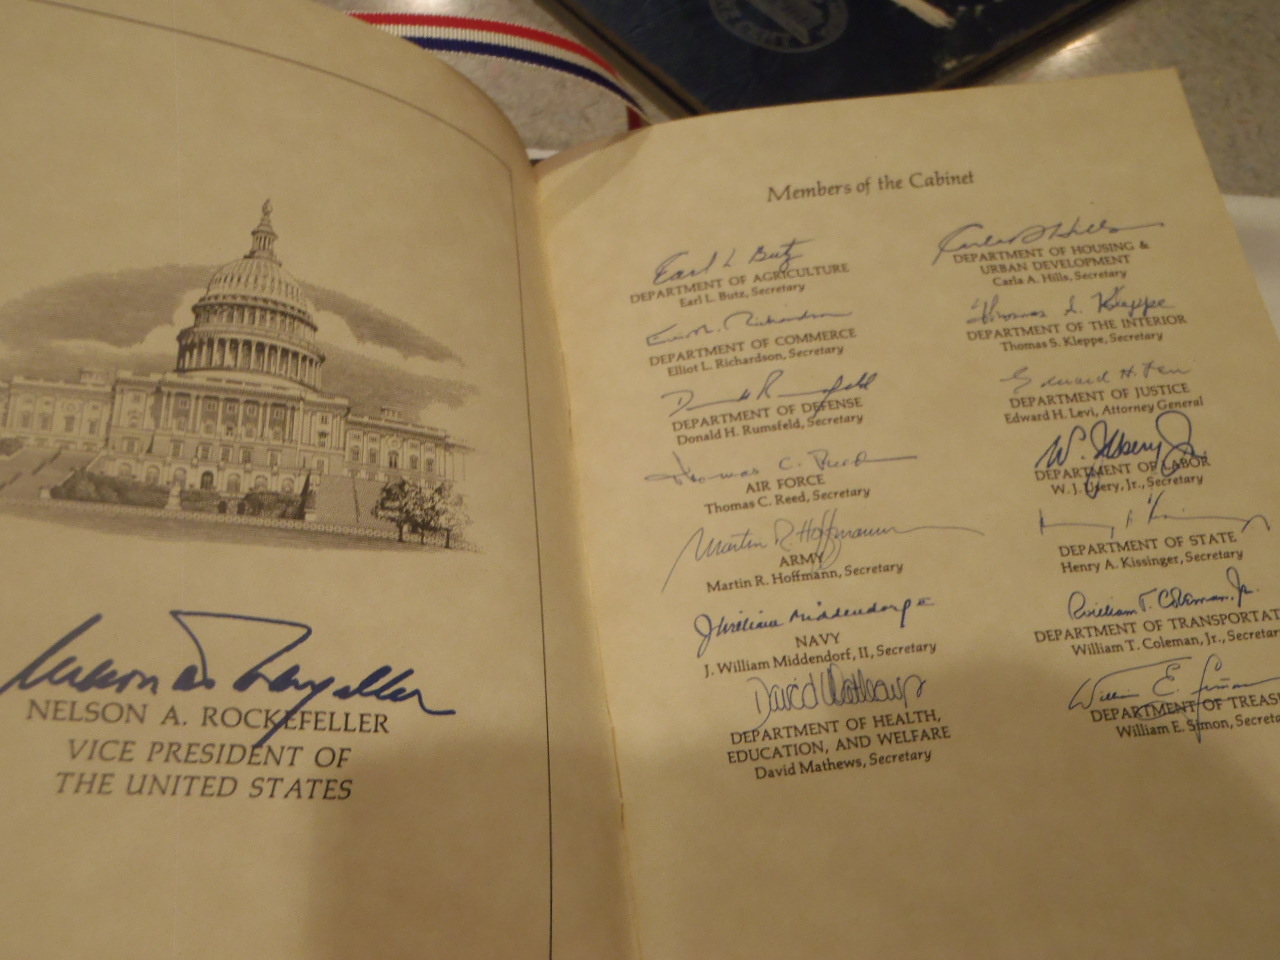 Nelson A. Rockefeller
NELSON A. ROCKEFELLER
VICE PRESIDENT OF
THE UNITED STATES
Members of the Cabinet
Earl L Butz
DEPARTMENT OF AGRICULTURE
Earl L. Butz, Secretary
Elliot L. Richardson
DEPARTMENT OF COMMERCE
Elliot L. Richardson, Secretary
Donald Rumsfeld
DEPARTMENT OF DEFENSE
Donald H. Rumsfeld, Secretary
Thomas C. Reed
AIR FORCE
Thomas C. Reed, Secretary
Martin R. Hoffmann
ARMY
Martin R. Hoffmann, Secretary
J William Middendorf II
NAVY
J. William Middendorf, II, Secretary
David Mathews
DEPARTMENT OF HEALTH,
EDUCATION, AND WELFARE
David Mathews, Secretary
Carla A Hills
DEPARTMENT OF HOUSING &
URBAN DEVELOPMENT
Carla A. Hills, Secretary
Thomas S. Kleppe
DEPARTMENT OF THE INTERIOR
Thomas S. Kleppe, Secretary
Edward H. Levi
DEPARTMENT OF JUSTICE
Edward H. Levi, Attorney General
W. J. Usery, Jr.
DEPARTMENT OF LABOR
W. J. Usery, Jr., Secretary
Henry A. Kissinger
DEPARTMENT OF STATE
Henry A. Kissinger, Secretary
William T. Coleman, Jr.
DEPARTMENT OF TRANSPORTAT
William T. Coleman, Jr., Secretar
William E. Simon
DEPARTMENT OF TREAS
William E. Simon, Secreta